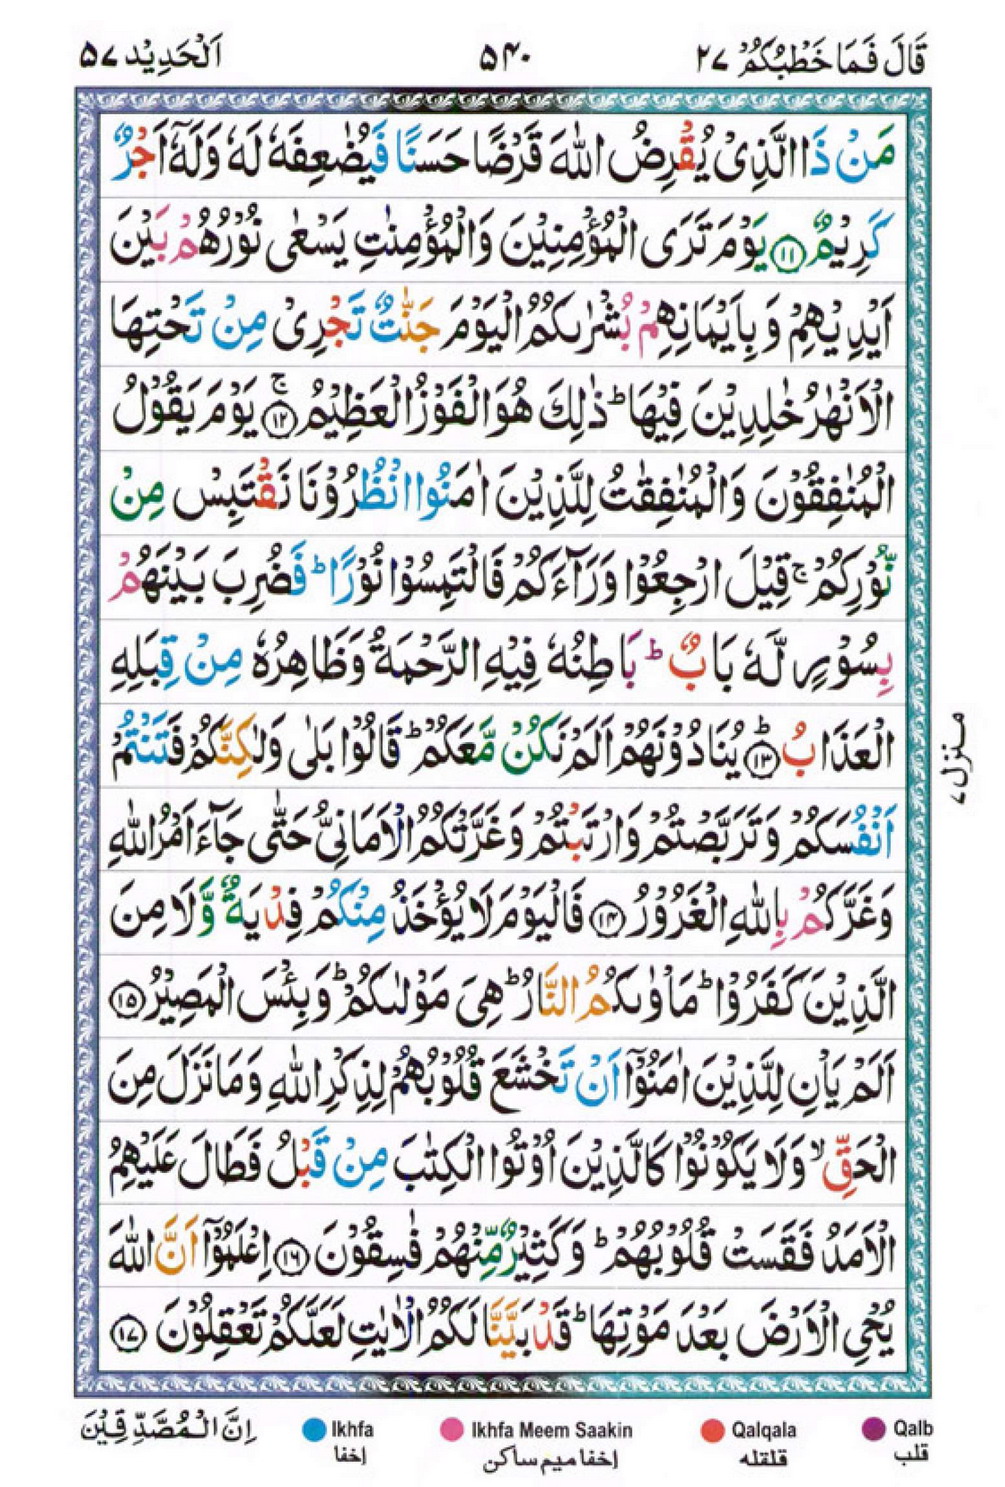 قَالَ فَمَا خَطْبُكُمْ ٢٧
٥٤٠
اَلْحَدِيْد ٥٧
مَنْ ذَا الَّذِىْ يُقْرِضُ اللّٰهَ قَرْضًا حَسَنًا فَيُضٰعِفَهٗ لَهٗ وَلَهٗۤ اَجْرٌ
كَرِيْمٌ ﴿١١﴾ يَوْمَ تَرَى الْمُؤْمِنِيْنَ وَالْمُؤْمِنٰتِ يَسْعٰى نُوْرُهُمْ بَيْنَ
اَيْدِيْهِمْ وَ بِاَيْمَانِهِمْ بُشْرٰىكُمُ الْيَوْمَ جَنّٰتٌ تَجْرِىْ مِنْ تَحْتِهَا
الْاَنْهٰرُ خٰلِدِيْنَ فِيْهَا ؕ ذٰلِكَ هُوَ الْفَوْزُ الْعَظِيْمُ ۚ﴿١٢﴾ يَوْمَ يَقُوْلُ
الْمُنٰفِقُوْنَ وَالْمُنٰفِقٰتُ لِلَّذِيْنَ اٰمَنُوا انْظُرُوْنَا نَقْتَبِسْ مِنْ
نُّوْرِكُمْ ۚ قِيْلَ ارْجِعُوْا وَرَآءَكُمْ فَالْتَمِسُوْا نُوْرًا ؕ فَضُرِبَ بَيْنَهُمْ
بِسُوْرٍ لَّهٗ بَابٌ ؕ بَاطِنُهٗ فِيْهِ الرَّحْمَةُ وَظَاهِرُهٗ مِنْ قِبَلِهِ
الْعَذَابُ ؕ﴿١٣﴾ يُنَادُوْنَهُمْ اَلَمْ نَكُنْ مَّعَكُمْ ؕ قَالُوْا بَلٰى وَلٰكِنَّكُمْ فَتَنْتُمْ
اَنْفُسَكُمْ وَتَرَبَّصْتُمْ وَارْتَبْتُمْ وَغَرَّتْكُمُ الْاَمَانِىُّ حَتّٰى جَآءَ اَمْرُ اللّٰهِ
وَغَرَّكُمْ بِاللّٰهِ الْغَرُوْرُ ﴿١٤﴾ فَالْيَوْمَ لَا يُؤْخَذُ مِنْكُمْ فِدْيَةٌ وَّلَا مِنَ
الَّذِيْنَ كَفَرُوْا ؕ مَاْوٰىكُمُ النَّارُ ؕ هِىَ مَوْلٰىكُمْ ؕ وَبِئْسَ الْمَصِيْرُ ﴿١٥﴾
اَلَمْ يَاْنِ لِلَّذِيْنَ اٰمَنُوْۤا اَنْ تَخْشَعَ قُلُوْبُهُمْ لِذِكْرِ اللّٰهِ وَمَا نَزَلَ مِنَ
الْحَقِّ ۙ وَلَا يَكُوْنُوْا كَالَّذِيْنَ اُوْتُوا الْكِتٰبَ مِنْ قَبْلُ فَطَالَ عَلَيْهِمُ
الْاَمَدُ فَقَسَتْ قُلُوْبُهُمْ ؕ وَكَثِيْرٌ مِّنْهُمْ فٰسِقُوْنَ ﴿١٦﴾ اِعْلَمُوْۤا اَنَّ اللّٰهَ
يُحْىِ الْاَرْضَ بَعْدَ مَوْتِهَا ؕ قَدْ بَيَّنَّا لَكُمُ الْاٰيٰتِ لَعَلَّكُمْ تَعْقِلُوْنَ ﴿١٧﴾
منزل ٧
اِنَّ الْمُصَّدِّقِيْنَ
Ikhfa
اخفا
Ikhfa Meem Saakin
اخفا میم ساکن
Qalqala
قلقله
Qalb
قلب